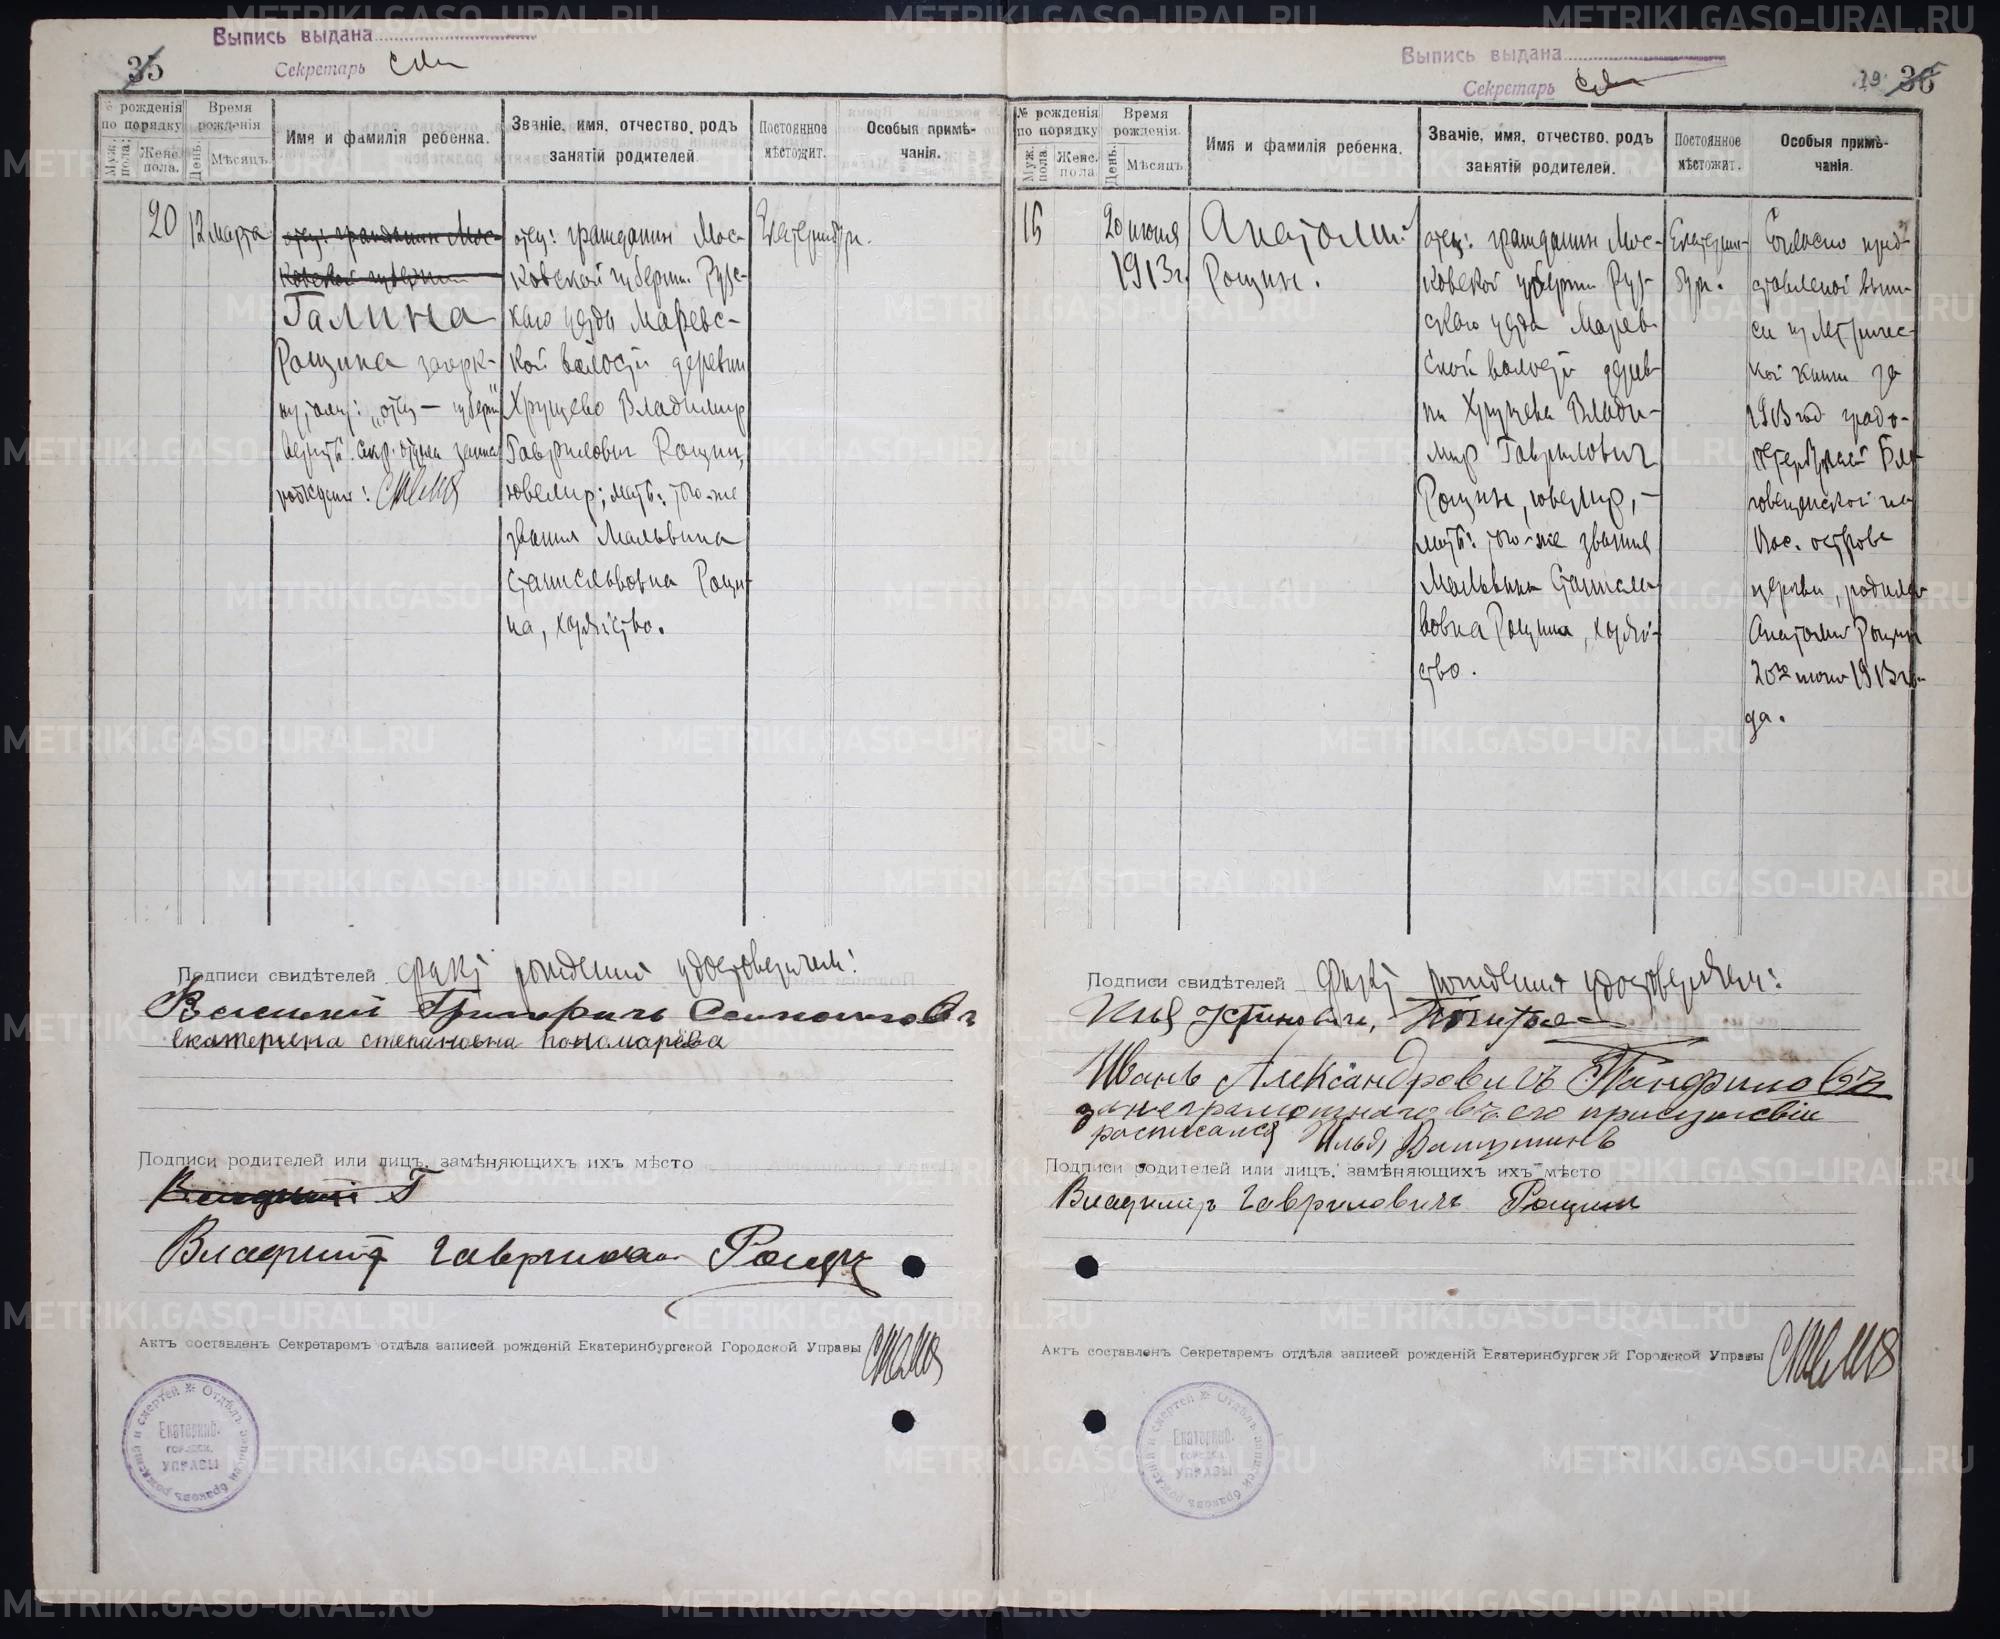 Выпись выдана
Секретарь
35
№ рожденія по порядку
Муж. пола.
Женс. пола.
Время рожденія
День.
Мѣсяцъ.
Имя и фамилія ребенка.
Званіе, имя, отчество, родъ занятій родителей.
Постоянное мѣстожит.
Особыя примѣчанія.
20
12 марта
отец: гражданин Мос-
ковской губернии
Галина
Рощина зачерк-
нутому: "отец — губернии"
верить. Секр. отдела записи
рождений:
отец: гражданин Мос-
ковской губернии Руз-
скаго уезда Маревс-
кой волости деревни
Хрущево Владимир
Гаврилович Рощин,
ювелир; мать: того-же
звания Мальвина
Станиславовна Рощи-
на, хозяйство.
Екатеринбург.
Подписи свидѣтелей факт рождения удостоверяем:
Григорьевичъ
екатерина степановна пономарёва
Подписи родителей или лицъ, замѣняющихъ ихъ мѣсто
Г
Владимир Рощин
Актъ составленъ Секретаремъ отдѣла записей рожденій Екатеринбургской Городской Управы
Отдѣлъ записи браковъ рожденій и смертей
Екатеринб.
городск.
УПРАВЫ
Выпись выдана
Секретарь
19 36
№ рожденія по порядку
Муж. пола
Женс. пола
Время рожденія.
День.
Мѣсяцъ
Имя и фамилія ребенка.
Званіе, имя, отчество, родъ занятій родителей.
Постоянное мѣстожит.
Особыя примѣчанія.
15
20 июня
1913 г.
Анатолий
Рощин.
отец: гражданин Мос-
ковской губернии Руз-
скаго уезда Марев-
ской волости дерев-
ни Хрущева Влади-
мир Гаврилович
Рощин, ювелир, -
мать: того-же звания
Мальвина Станисла-
вовна Рощина, хозяй-
ство.
Екатерин-
бург.
Согласно пред-
ставленой выпи-
си из метричес-
кой книги за
1913 год градо-
петербургской Бла-
говещенской на
Вас. острове
церкви, родился
Анатолий Рощин
20го июня 1913 го-
да.
Подписи свидѣтелей факт рождения удостоверяем:
Илья Устинович,
Иванъ Александровичъ
за неграмотнаго въ его присуцствіи
росписался Илья
Подписи родителей или лицъ, замѣняющихъ ихъ мѣсто
Владимиръ Гавриловичъ Рощин
Актъ составленъ Секретаремъ отдѣла записей рожденій Екатеринбургской Городской Управы
Отдѣлъ записи браковъ рожденій и смертей
Екатеринб.
городск.
УПРАВЫ
METRIKI.GASO-URAL.RU